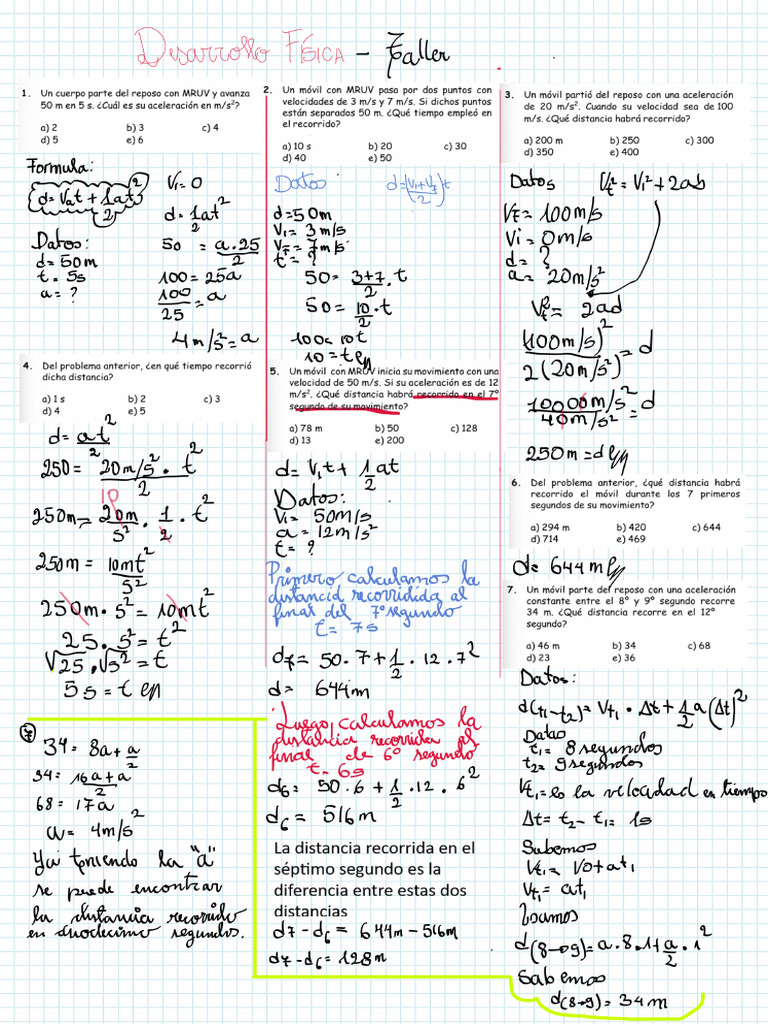 Desarrollo Física - Taller
1. Un cuerpo parte del reposo con MRUV y avanza
50 m en 5 s. ¿Cuál es su aceleración en m/s²?
a) 2 b) 3 c) 4
d) 5 e) 6
Formula:
d=V₀t+1at²
2
Datos:
d=50m
t=5s
a=?
V₁=0
d=1at²
2
50=a.25
2
100=25a
100=a
25
4m/s²=a
2. Un móvil con MRUV pasa por dos puntos con
velocidades de 3 m/s y 7 m/s. Si dichos puntos
están separados 50 m. ¿Qué tiempo empleó en
el recorrido?
a) 10 s b) 20 c) 30
d) 40 e) 50
Datos
d=(V₁+V₂)t
2
d=50m
V₁=3m/s
V₂=7m/s
t=?
50=3+7.t
2
50=10.t
2
100=10t
10=t
3. Un móvil partió del reposo con una aceleración
de 20 m/s². Cuando su velocidad sea de 100
m/s. ¿Qué distancia habrá recorrido?
a) 200 m b) 250 c) 300
d) 350 e) 400
Datos
Vt=100m/s
Vi=0m/s
d=?
a=20m/s²
Vt²=2ad
(100m/s)²=d
2(20m/s²)
10000m/s²=d
40m/s²
250m=d
4. Del problema anterior, ¿en qué tiempo recorrió
dicha distancia?
a) 1 s b) 2 c) 3
d) 4 e) 5
d=at²
2
250=20m/s².t²
2
10
250m=20m.1.t²
s² 2
250m=10mt²
s²
250m.s²=10mt²
25.s²=t²
√25.√s²=t
5s=t
5. Un móvil con MRUV inicia su movimiento con una
velocidad de 50 m/s. Si su aceleración es de 12
m/s². ¿Qué distancia habrá recorrido en el 7°
segundo de su movimiento?
a) 78 m b) 50 c) 128
d) 13 e) 200
d=V₁t+1at
2
Datos:
V₁=50m/s
a=12m/s²
t=?
Primero calculamos la
distancia recorridida al
final del 7°segundo
t=7s
d₇=50.7+1.12.7²
2
d=644m
Luego, calculamos la
distancia recorrida al
final de 6° segundo
t=6s
d₆=50.6+1.12.6²
2
d₆=516m
La distancia recorrida en el
séptimo segundo es la
diferencia entre estas dos
distancias
d₇-d₆=644m-516m
d₇-d₆=128m
6. Del problema anterior, ¿qué distancia habrá
recorrido el móvil durante los 7 primeros
segundos de su movimiento?
a) 294 m b) 420 c) 644
d) 714 e) 469
d=644m
7. Un móvil parte del reposo con una aceleración
constante entre el 8° y 9° segundo recorre
34 m. ¿Qué distancia recorre en el 12°
segundo?
a) 46 m b) 34 c) 68
d) 23 e) 36
Datos:
d(t₁-t₂)=Vt₁.Δt+1a(Δt)²
2
Datos
t₁=8segundos
t₂=9segundos
Vt₁=es la velocidad en tiempo
Δt=t₂-t₁=1s
Sabemos
Vt₁=V0+at₁
Vt₁=at₁
Usamos
d(8→9)=a.8.1+a.1²
2
Sabemos
d(8→9)=34m
7
34=8a+a
2
34=16a+a
2
68=17a
a=4m/s²
Ya teniendo la "a"
se puede encontrar
la distancia recorrido
en duodecimo segundos.